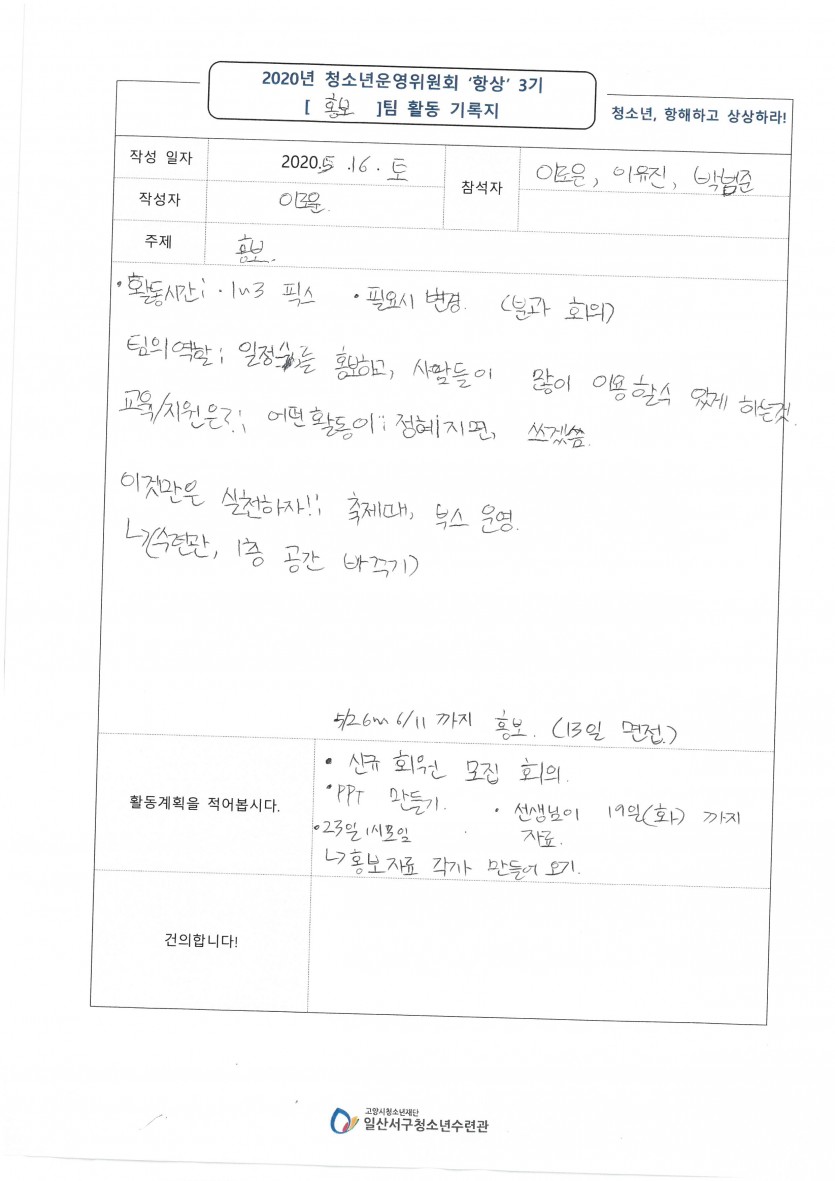 2020년 청소년운영위원회 '항상' 3기
[ 홍보 ]팀 활동 기록지
청소년, 항해하고 상상하라!
작성 일자 2020.5.16.토
참석자 이로운, 이유진, 박범준
작성자 이로운.
주제 홍보.
·활동시간; ·1n3 픽스 ·필요시 변경. (분과 회의)
팀의역할; 일정 를 홍보하고, 사람들이 많이 이용할수 있게 하는것.
교육/지원은?; 어떤활동이;; 정혜지면, 쓰겠씀.
이것만은 실천하자!; 축제때, 부스 운영.
↳(수련관, 1층 공간 바꾹기)
5/26~ 6/11 까지 홍보. (13일 면접.)
활동계획을 적어봅시다.
• 신규 회원 모집 회의.
• PPT 만들기. • 선생님이 19일(화) 까지
자료.
•23일 1시모임
↳홍보자료 각가 만들어 오기.
건의합니다!
고양시청소년재단
일산서구청소년수련관